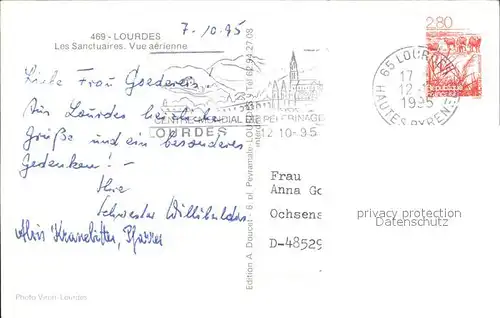 469 - LOURDES
Les Sanctuaires. Vue aérienne
7.10.95
Liebe Frau
Aus Lourdes herzliche
Grüße und ein besonderes
Gedenken! -
Ihre
Schwester Willibalda
Alois Kranebitter, Pfarrer
Photo Viron-Lourdes
Edition A. Doucet - 6, pl. Peyramale - LOURDES - Tel 62 94 27 08
CENTRE MONDIAL DE PELERINAGE
LOURDES 12 10 -95
2.80
65 LOURDES
17
12.
1995
HAUTES PYRENEES
Frau
Anna Go
Ochsens
D-48529
privacy protection
Datenschutz